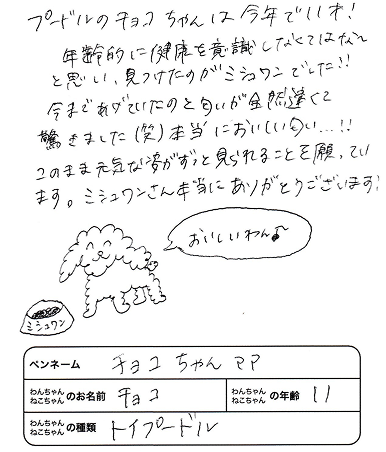 プードルのチョコちゃんは今年で11才!
年齢的に健康を意識しなくてはな〜
と思い、見つけたのがミシュワンでした!!
今まであげていたのと匂いが全然違くて
驚きました(笑)本当においしい匂い…!!
このまま元気な姿がずっと見られることを願ってい
ます。ミシュワンさん本当にありがとうございます!
おいしいわん♪
ミシュワン
ペンネーム チョコちゃんママ
わんちゃん ねこちゃん のお名前 チョコ わんちゃん ねこちゃん の年齢 11
わんちゃん ねこちゃん の種類 トイプードル